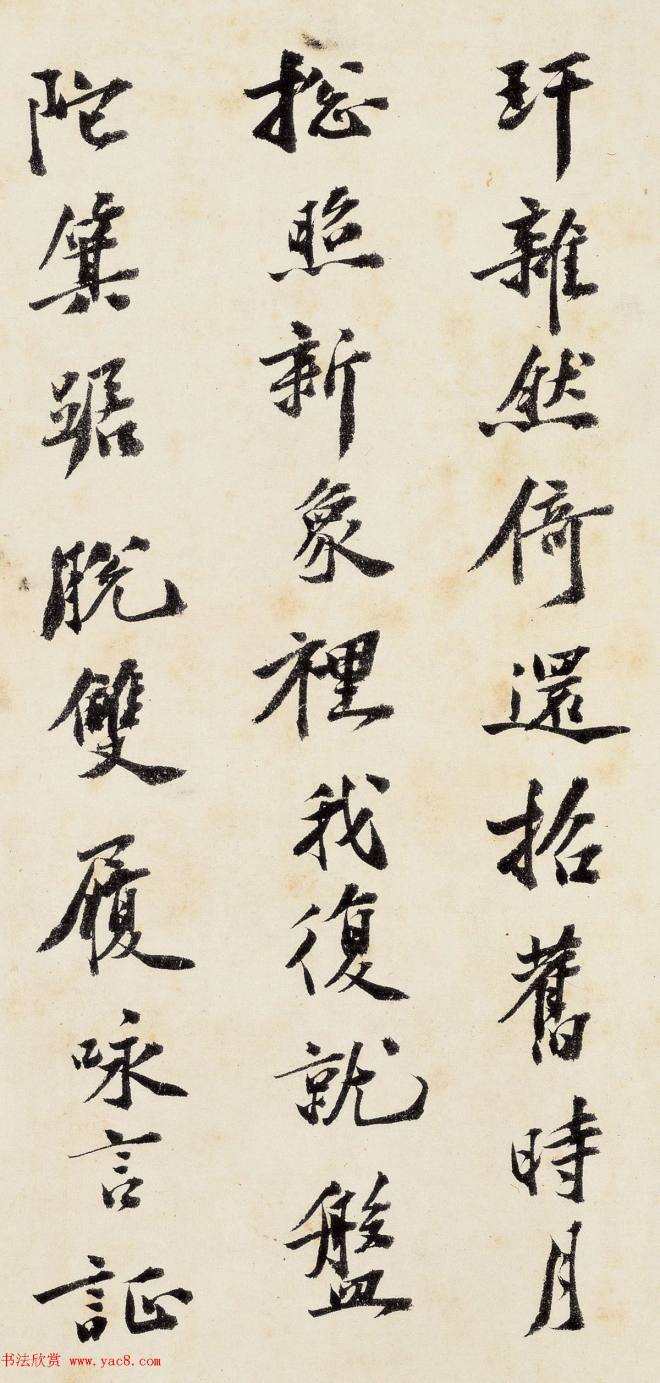 玕雜然倚還拾舊時月
捴照新象裡我復就盤
陀箕踞脫雙履咏言証
书法欣赏 www.yac8.com